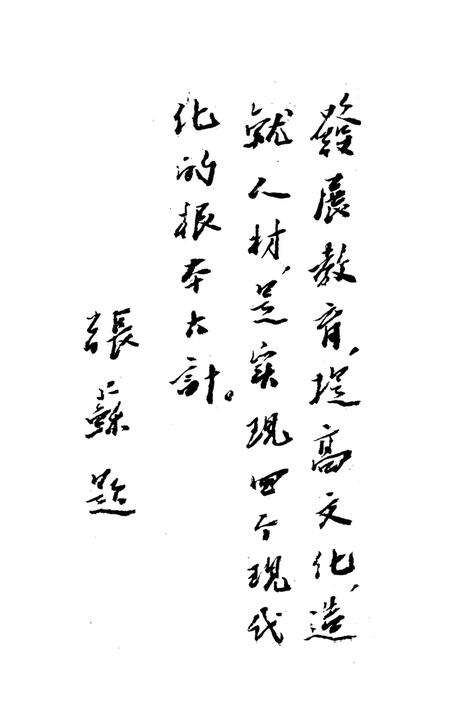 發展教育，提高文化，造
就人材，是实现四个现代
化的根本大計。
張蘇题